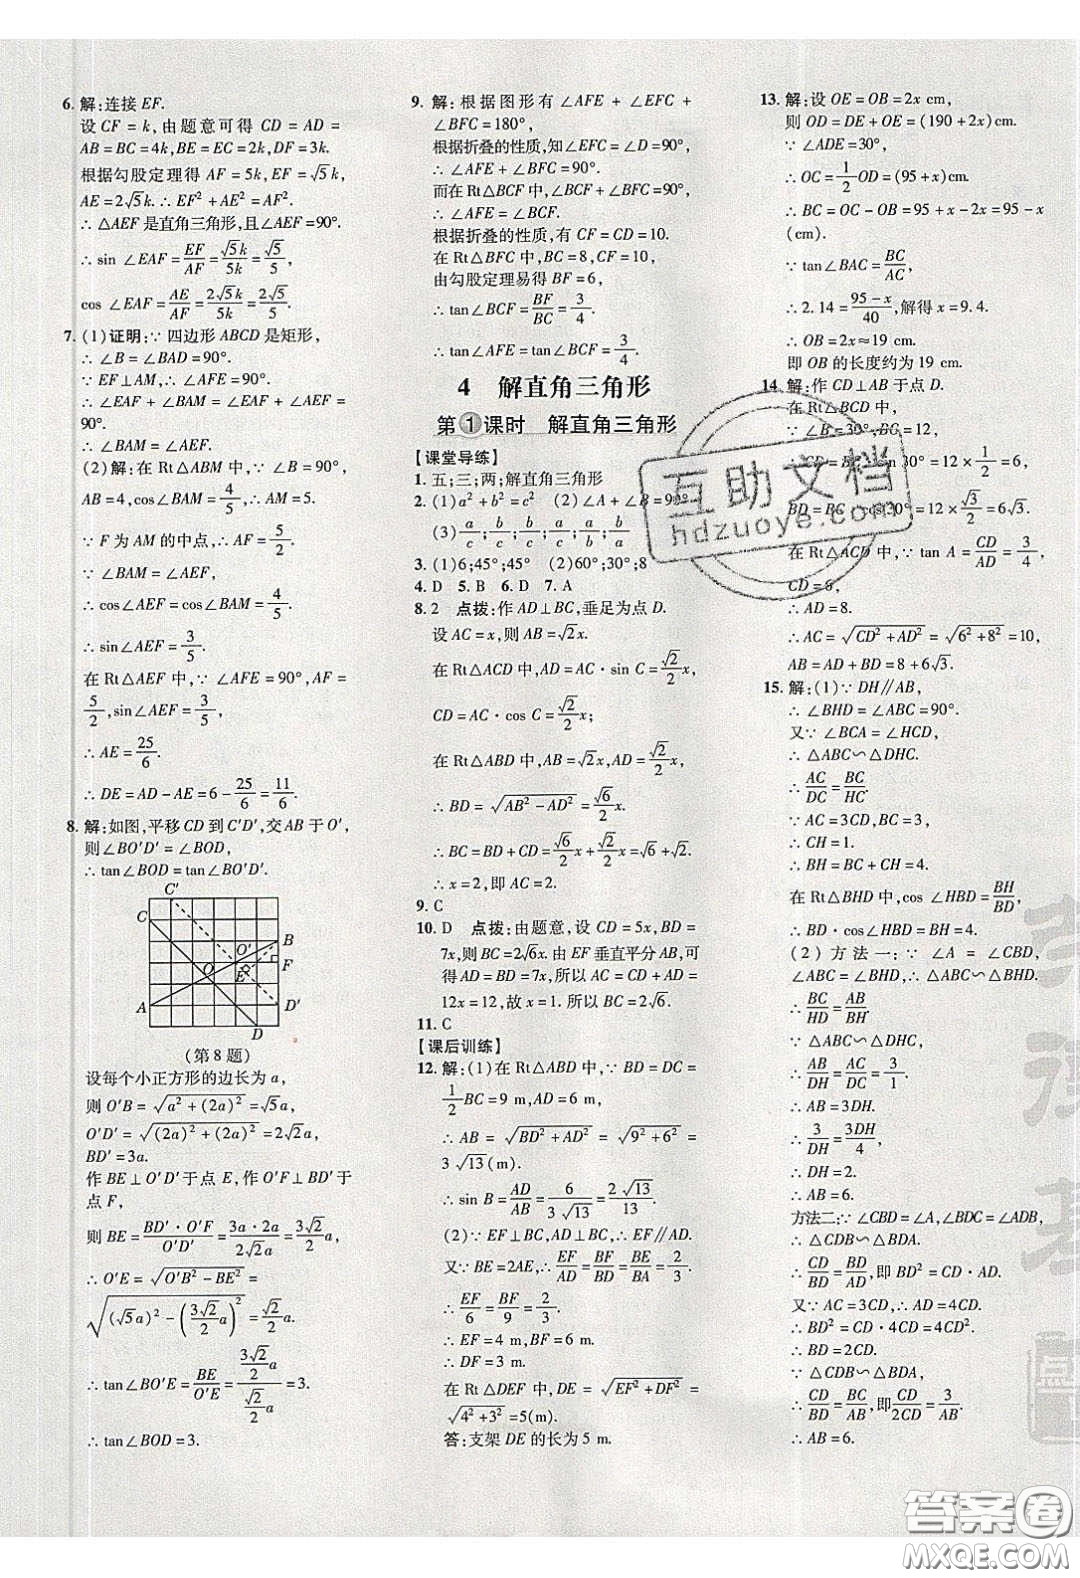 6. 解:连接 EF.
设 CF = k, 由题意可得 CD = AD =
AB = BC = 4k, BE = EC = 2k, DF = 3k.
根据勾股定理得 AF = 5k, EF = √5k,
AE = 2√5k. ∴ EF² + AE² = AF².
∴ △AEF 是直角三角形, 且∠AEF = 90°.
∴ sin ∠EAF = EF/AF = √5k/5k = √5/5,
cos ∠EAF = AE/AF = 2√5k/5k = 2√5/5.
7. (1) 证明: ∵ 四边形 ABCD 是矩形,
∴ ∠B = ∠BAD = 90°.
∵ EF⊥AM, ∴ ∠AFE = 90°.
∴ ∠EAF + ∠BAM = ∠EAF + ∠AEF =
90°.
∴ ∠BAM = ∠AEF.
(2) 解: 在 Rt△ABM 中, ∵ ∠B = 90°,
AB = 4, cos∠BAM = 4/5, ∴ AM = 5.
∵ F 为 AM 的中点, ∴ AF = 5/2.
∵ ∠BAM = ∠AEF,
∴ cos∠AEF = cos∠BAM = 4/5.
∴ sin∠AEF = 3/5.
在 Rt△AEF 中, ∵ ∠AFE = 90°, AF =
5/2, sin∠AEF = 3/5,
∴ AE = 25/6.
∴ DE = AD − AE = 6 − 25/6 = 11/6.
8. 解: 如图, 平移 CD 到 C′D′, 交 AB 于 O′,
则∠BO′D′ = ∠BOD,
∴ tan∠BOD = tan∠BO′D′.
C′
C
O′
B
O
E
F
A
D′
D
(第 8 题)
设每个小正方形的边长为 a,
则 O′B = √(a² + (2a)²) = √5a,
O′D′ = √((2a)² + (2a)²) = 2√2a,
BD′ = 3a.
作 BE⊥O′D′ 于点 E, 作 O′F⊥BD′ 于
点 F,
则 BE = BD′·O′F/O′D′ = 3a·2a/2√2a = 3√2/2 a,
∴ O′E = √(O′B² − BE²) =
√((√5a)² − (3√2/2 a)²) = √2/2 a.
∴ tan∠BO′E = BE/O′E = (3√2/2 a)/(√2/2 a) = 3.
∴ tan∠BOD = 3.
9. 解: 根据图形有 ∠AFE + ∠EFC +
∠BFC = 180°,
根据折叠的性质, 知∠EFC = ∠D = 90°,
∴ ∠AFE + ∠BFC = 90°.
而在 Rt△BCF 中, ∠BCF + ∠BFC = 90°,
∴ ∠AFE = ∠BCF.
根据折叠的性质, 有 CF = CD = 10.
在 Rt△BFC 中, BC = 8, CF = 10,
由勾股定理易得 BF = 6,
∴ tan∠BCF = BF/BC = 3/4.
∴ tan∠AFE = tan∠BCF = 3/4.
4 解直角三角形
第1课时 解直角三角形
【课堂导练】
1. 五; 三; 两; 解直角三角形
2. (1) a² + b² = c² (2) ∠A + ∠B = 90°
(3) a/c; b/c; b/c; a/c; a/b; b/a
3. (1) 6; 45°; 45° (2) 60°; 30°; 8
4. D 5. B 6. D 7. A
8. 2 点拨: 作 AD⊥BC, 垂足为点 D.
设 AC = x, 则 AB = √2x.
在 Rt△ACD 中, AD = AC·sin C = √2/2 x,
CD = AC·cos C = √2/2 x.
在 Rt△ABD 中, AB = √2x, AD = √2/2 x,
∴ BD = √(AB² − AD²) = √6/2 x.
∴ BC = BD + CD = √6/2 x + √2/2 x = √6 + √2.
∴ x = 2, 即 AC = 2.
9. C
10. D 点拨: 由题意, 设 CD = 5x, BD =
7x, 则 BC = 2√6x. 由 EF 垂直平分 AB, 可
得 AD = BD = 7x, 所以 AC = CD + AD =
12x = 12, 故 x = 1. 所以 BC = 2√6.
11. C
【课后训练】
12. 解: (1) 在 Rt△ABD 中, ∵ BD =
1/2 BC = 9 m, AD = 6 m,
∴ AB = √(BD² + AD²) = √(9² + 6²) =
3√13(m).
∴ sin B = AD/AB = 6/3√13 = 2√13/13.
(2) ∵ EF⊥BC, AD⊥BC, ∴ EF∥AD.
又∵ BE = 2AE, ∴ EF/AD = BF/BD = BE/BA = 2/3.
∴ EF/6 = BF/9 = 2/3.
∴ EF = 4 m, BF = 6 m.
∴ DF = 3 m.
在 Rt△DEF 中, DE = √(EF² + DF²) =
√(4² + 3²) = 5(m).
答: 支架 DE 的长为 5 m.
13. 解: 设 OE = OB = 2x cm,
则 OD = DE + OE = (190 + 2x) cm.
∵ ∠ADE = 30°,
∴ OC = 1/2 OD = (95 + x) cm.
∴ BC = OC − OB = 95 + x − 2x = 95 − x
(cm).
∵ tan∠BAC = BC/AC,
∴ 2.14 = (95 − x)/40, 解得 x = 9.4.
∴ OB = 2x ≈ 19 cm.
即 OB 的长度约为 19 cm.
14. 解: 作 CD⊥AB 于点 D.
在 Rt△BCD 中,
∵ ∠B = 30°, BC = 12,
∴ CD = BC·sin 30° = 12 × 1/2 = 6,
BD = BC·cos30° = 12 × √3/2 = 6√3.
在 Rt△ACD 中, ∵ tan A = CD/AD = 3/4,
CD = 6,
∴ AD = 8.
∴ AC = √(CD² + AD²) = √(6² + 8²) = 10,
AB = AD + BD = 8 + 6√3.
15. 解: (1) ∵ DH∥AB,
∴ ∠BHD = ∠ABC = 90°.
又∵ ∠BCA = ∠HCD,
∴ △ABC∽△DHC.
∴ AC/DC = BC/HC.
∵ AC = 3CD, BC = 3,
∴ CH = 1.
∴ BH = BC + CH = 4.
在 Rt△BHD 中, cos ∠HBD = BH/BD,
∴ BD·cos∠HBD = BH = 4.
(2) 方法一: ∵ ∠A = ∠CBD,
∠ABC = ∠BHD, ∴ △ABC∽△BHD.
∴ BC/HD = AB/BH.
∵ △ABC∽△DHC,
∴ AB/DH = AC/DC = 3/1.
∴ AB = 3DH.
∴ 3/DH = 3DH/4,
∴ DH = 2.
∴ AB = 6.
方法二: ∵ ∠CBD = ∠A, ∠BDC = ∠ADB,
∴ △CDB∽△BDA.
∴ CD/BD = BD/AD, 即 BD² = CD·AD.
又∵ AC = 3CD, ∴ AD = 4CD.
∴ BD² = CD·4CD = 4CD².
∴ BD = 2CD.
∵ △CDB∽△BDA,
∴ CD/BD = BC/AB, 即 CD/2CD = 3/AB.
∴ AB = 6.
互助文档
hdzuoye.com
点
答案圈
MXQE.COM